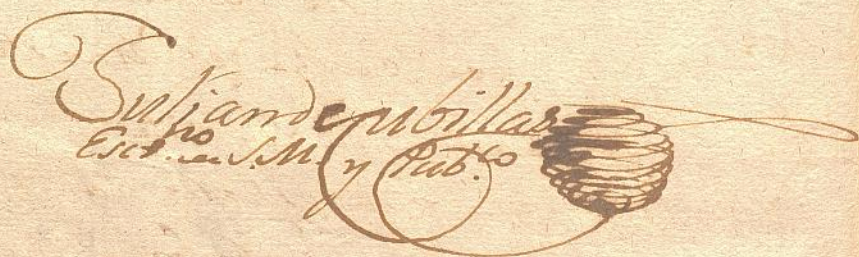 Julian de Cubillas
Escr.no de S.M. y Pub.co